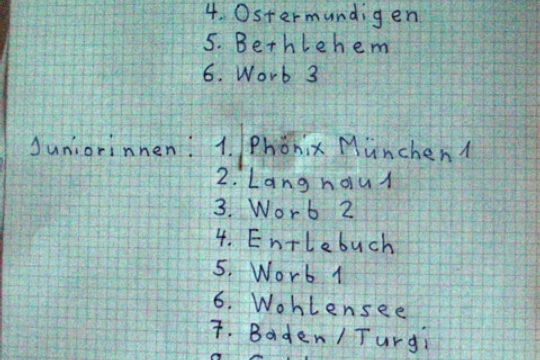 4. Ostermundigen
5. Bethlehem
6. Worb 3
Juniorinnen: 1. Phönix München 1
2. Langnau 1
3. Worb 2
4. Entlebuch
5. Worb 1
6. Wohlensee
7. Baden / Turgi
8.